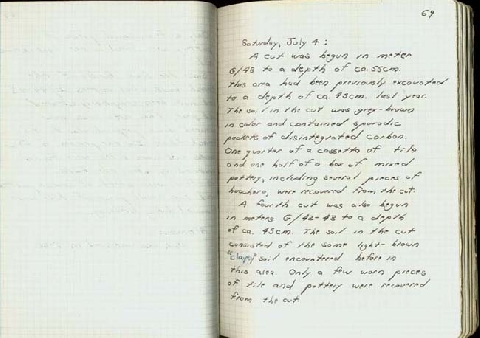 69
Saturday, July 4:
A cut was begun in meter
G/48 to a depth of ca. 55cm.
This area had been previously excavated
to a depth of ca. 43cm. last year.
The soil in the cut was grey-brown
in color and contained sporadic
pockets of disintegrated carbon.
One quarter of a cassetta of tile
and one half of a box of mixed
pottery, including several pieces of
bucchero, were recovered from the cut.
A fourth cut was also begun
in meters G/42-48 to a depth
of ca. 45cm. The soil in the cut
consisted of the same light-brown
"clayey" soil encountered before in
this area. Only a few worn pieces
of tile and pottery were recovered
from the cut.